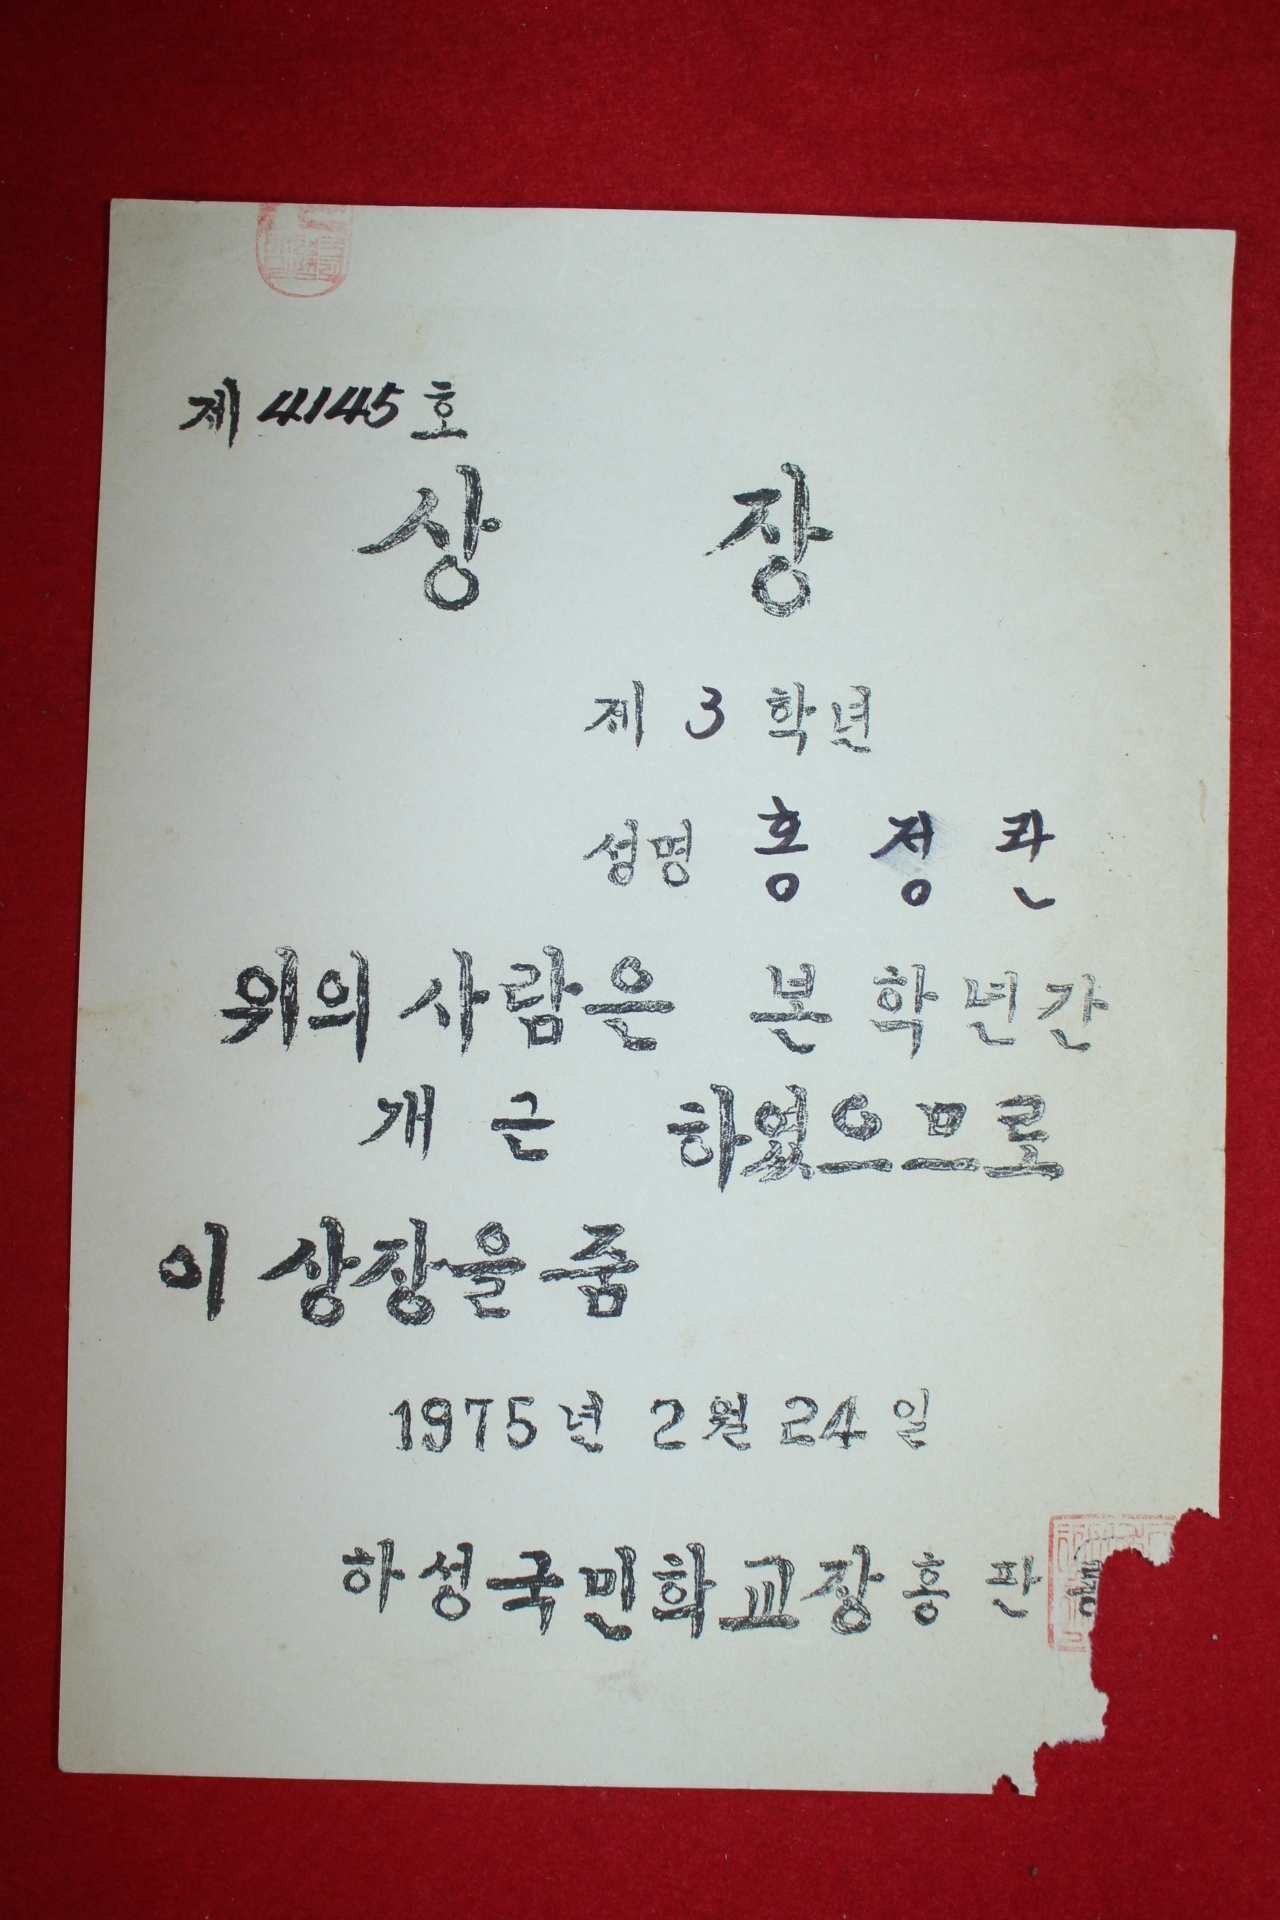 제 4145 호
상 장
제 3 학년
성명 홍 정 관
위의 사람은 본 학년간
개 근 하였으므로
이 상장을 줌
1975년 2월 24일
하성국민학교장 홍 판